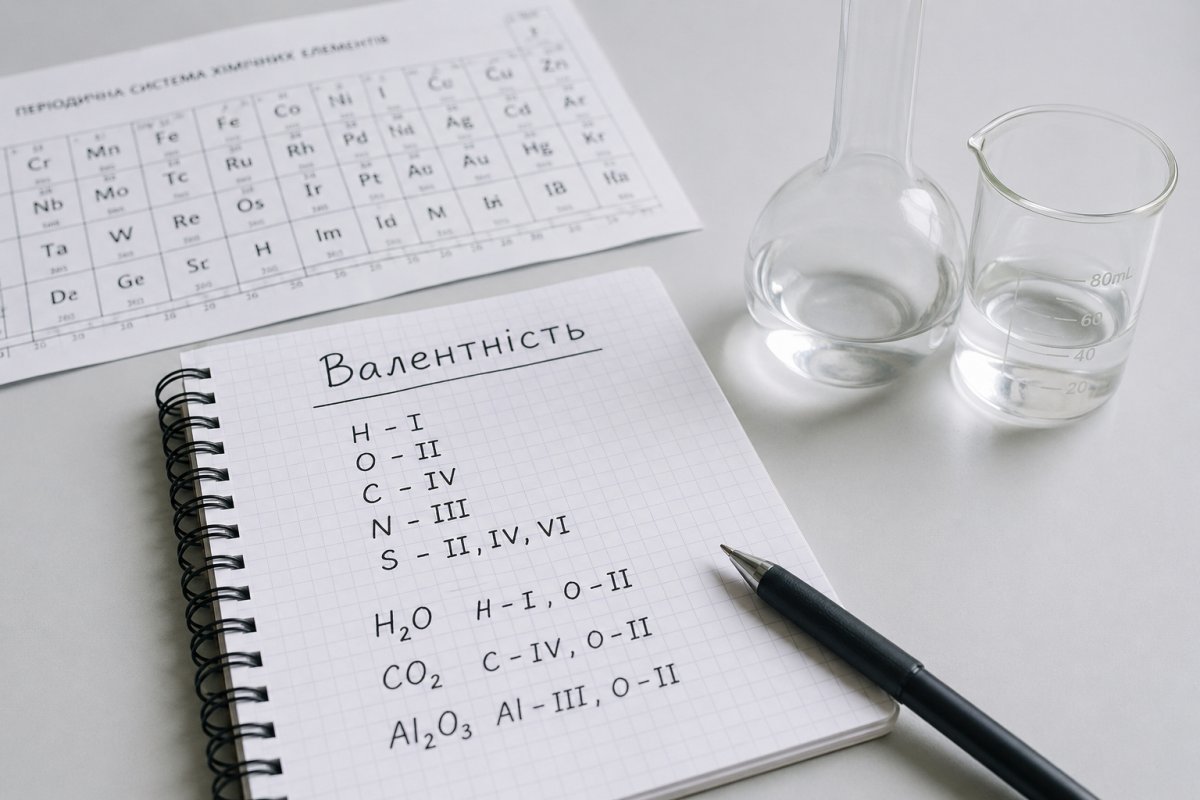 ПЕРІОДИЧНА СИСТЕМА ХІМІЧНИХ ЕЛЕМЕНТІВ
Cr Mn Fe Fe Co Ni I Cu Zn
Nb Mo Tc Ru Rh Pd Nd Ag Cd Ar
Ta W Re Os Ir Pt Au Au Hg Kr
De Ge St H Im Id M IB Ha
80mL
60
40
20
Валентність
H - I
O - II
C - IV
N - III
S - II, IV, VI
H₂O H - I, O - II
CO₂ C - IV, O - II
Al₂O₃ Al - III, O - II